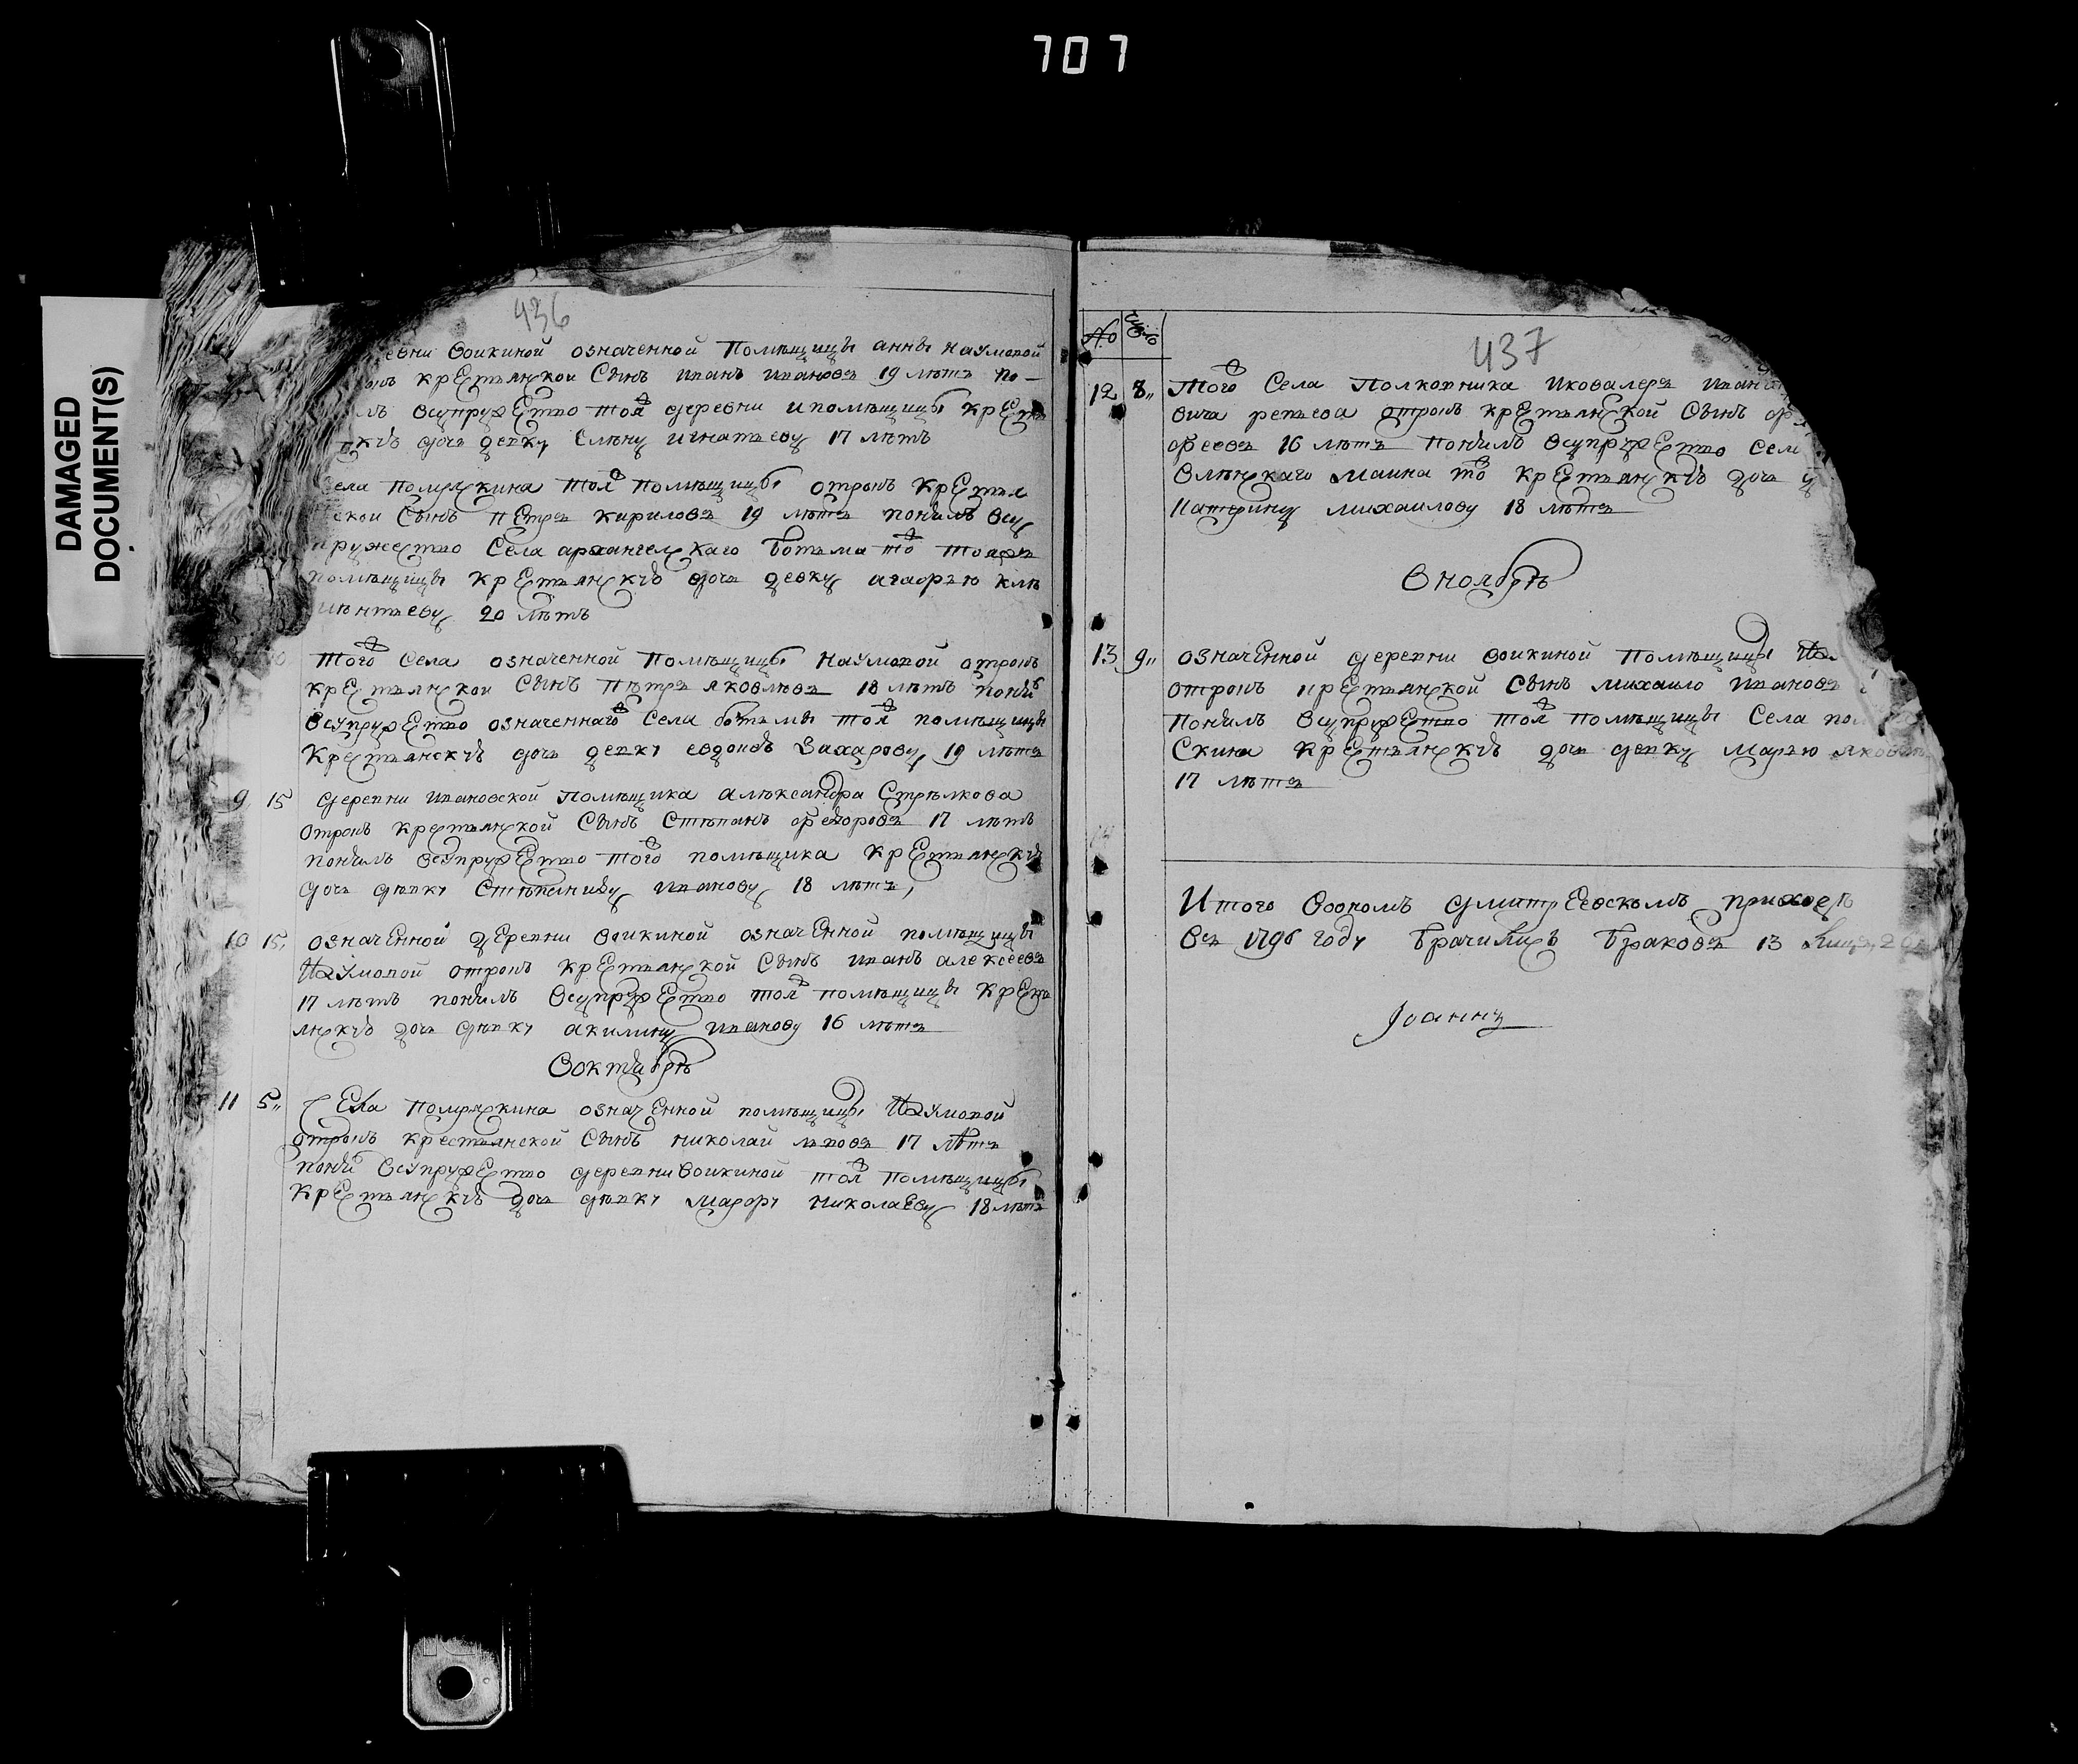 707
DAMAGED
DOCUMENT(S)
436
евни воикиной означенной помѣщицы анны наумовой
крестьянской сынъ иванъ ивановъ 19 лѣтъ по-
лъ всупружество тоя деревни и помѣщицы крестья
дочь девку елѣну игнатьеву 17 лѣтъ
села помряскина тоя помѣщицы отрокъ крестья
ской сынъ петръ кириловъ 19 лѣтъ понялъ всу
пружество села архангелскаго ботьма то тояже
помѣщицы крестьянскую дочь девку агафью клѣ
мѣнтьеву 20 лѣтъ
того села означенной помѣщицы наумовой отрокъ
крестьянской сынъ пѣтръ яковлевъ 18 лѣтъ поня
всупружество означеннаго села ботьмы тоя помѣщицы
крестьянску дочь девку евдокью захарову 19 лѣтъ
9 15 деревни ивановской помѣщика алѣксандра стрѣлкова
отрокъ крестьянской сынъ стѣпанъ федоровъ 17 лѣтъ
понялъ всупружество того помѣщика крестьянску
дочь дѣвку стѣпаниду иванову 18 лѣтъ,
10 15, означенной деревни воикиной означенной помѣщицы
наумовой отрокъ крестьянской сынъ иванъ алексеевъ
17 лѣтъ понялъ всупружество тоя помѣщицы кресть
янску дочь дѣвку акилину иванову 16 лѣтъ
воктябрѣ
11 5,, села помряскина означенной помѣщицы наумовой
отрокъ крестьянской сынъ николай 17 лѣтъ
поня всупружество деревни воикиной тоя помѣщицы
крестьянску дочь дѣвку марфу николаеву 18 лѣтъ
№ число
437
12 8,, того села полковника икавалера иван
вича репьева отрокъ крестьянской сынъ
феевъ 16 лѣтъ понялъ всупружество села
маина то крестьянску дочь
катерину михаилову 18 лѣтъ
в ноябрѣ
13 9,, означенной деревни воикиной помѣщицы
отрокъ крестьянской сынъ михаило ивановъ
понялъ всупружество тоя помѣщицы села пом
скина крестьянску дочь девку марью яковлеву
17 лѣтъ
Итого воономъ дмитреевскомъ приходѣ
въ 1796 году брачившихъ браковъ 13
Иоаннъ